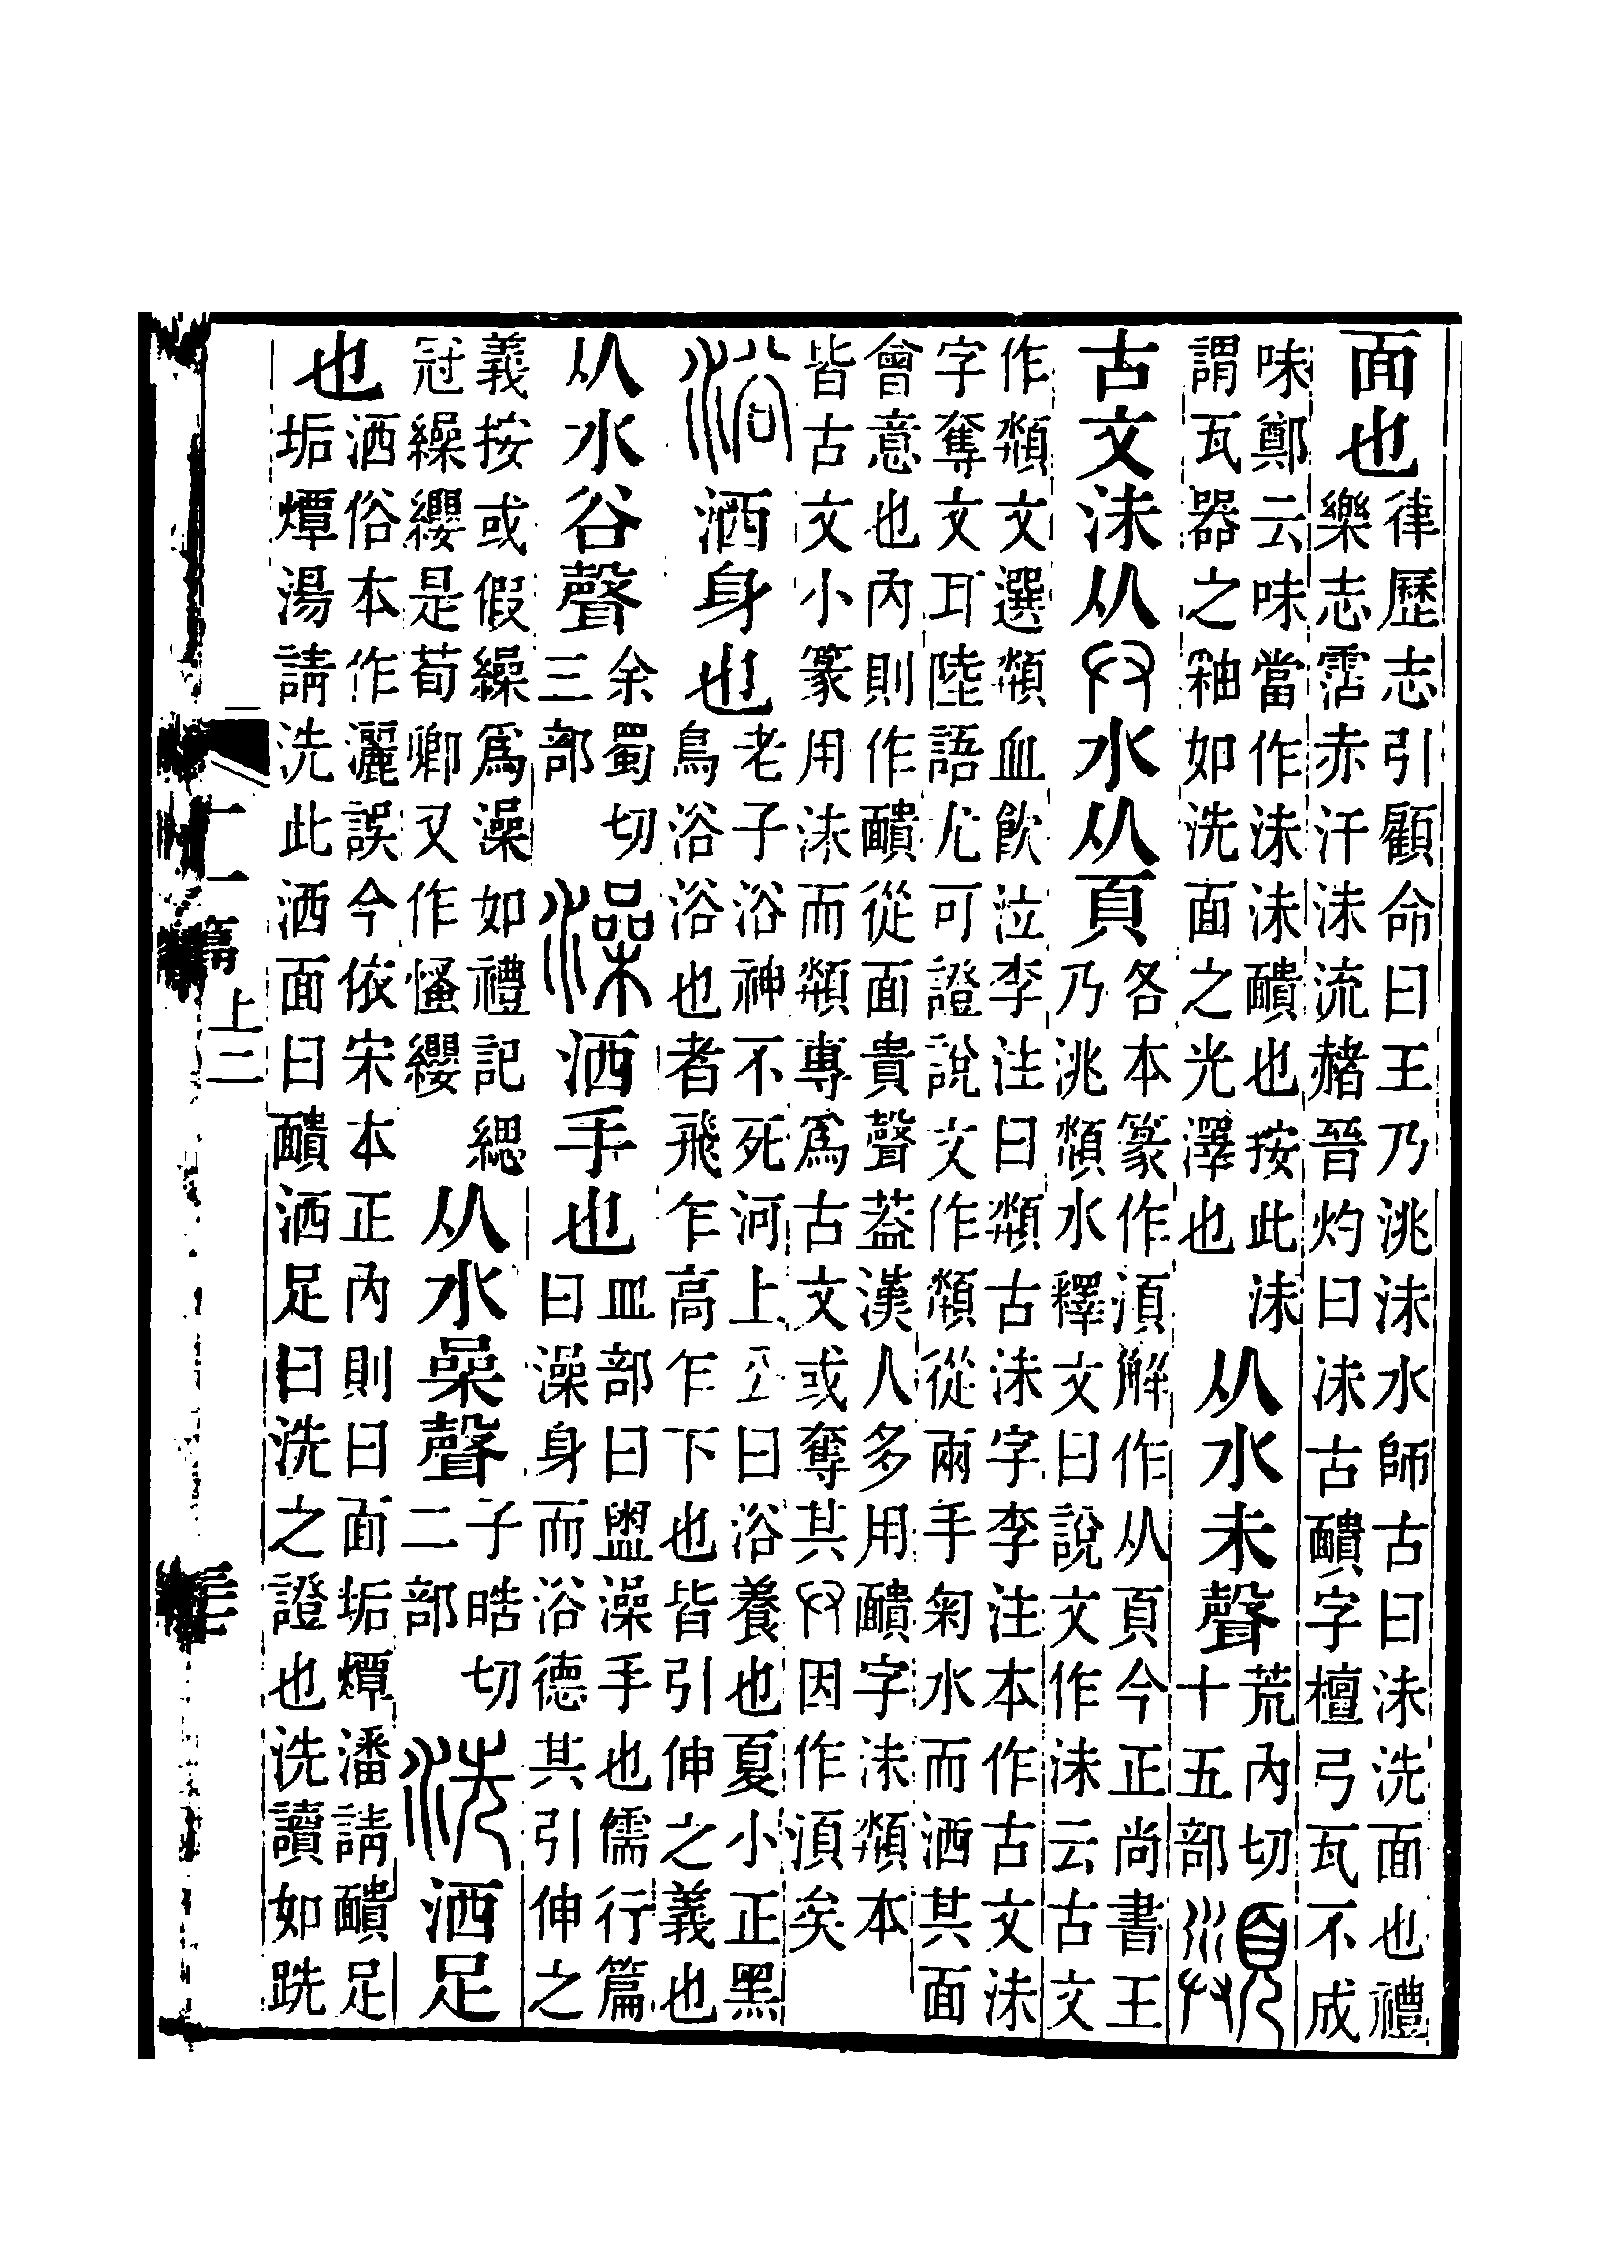 面也律歷志引顧命曰王乃洮沬水師古曰沬洗面也禮
樂志霑赤汗沬流赭晉灼曰沬古靧字檀弓瓦不成
味鄭云味當作沬沬靧也按此沬
謂瓦器之釉如洗面之光澤也
从水未聲荒內切十五部𩓣
古文沬从𠬞水从頁各本篆作湏解作从頁今正尚書王
乃洮頮水釋文曰說文作沬云古文
作頮文選頮血飮泣李注曰頮古沬字李注本作古文沬
字奪文耳陸語尤可證說文作頮從兩手匊水而洒其面
會意也內則作靧從面貴聲葢漢人多用靧字沬頮本
皆古文小篆用沬而頮專爲古文或奪其𠬞因作湏矣
浴洒身也老子浴神不死河上公曰浴養也夏小正黑
鳥浴浴也者飛乍高乍下也皆引伸之義也
从水谷聲余蜀切三部
澡洒手也皿部曰盥澡手也儒行篇
曰澡身而浴德其引伸之
義按或假繰爲澡如禮記緦
冠繰纓是荀卿又作慅纓
从水喿聲子晧切二部
洗洒足
也洒俗本作灑誤今依宋本正內則曰面垢燂潘請靧足
垢燂湯請洗此洒面曰靧洒足曰洗之證也洗讀如跣
十一篇上二